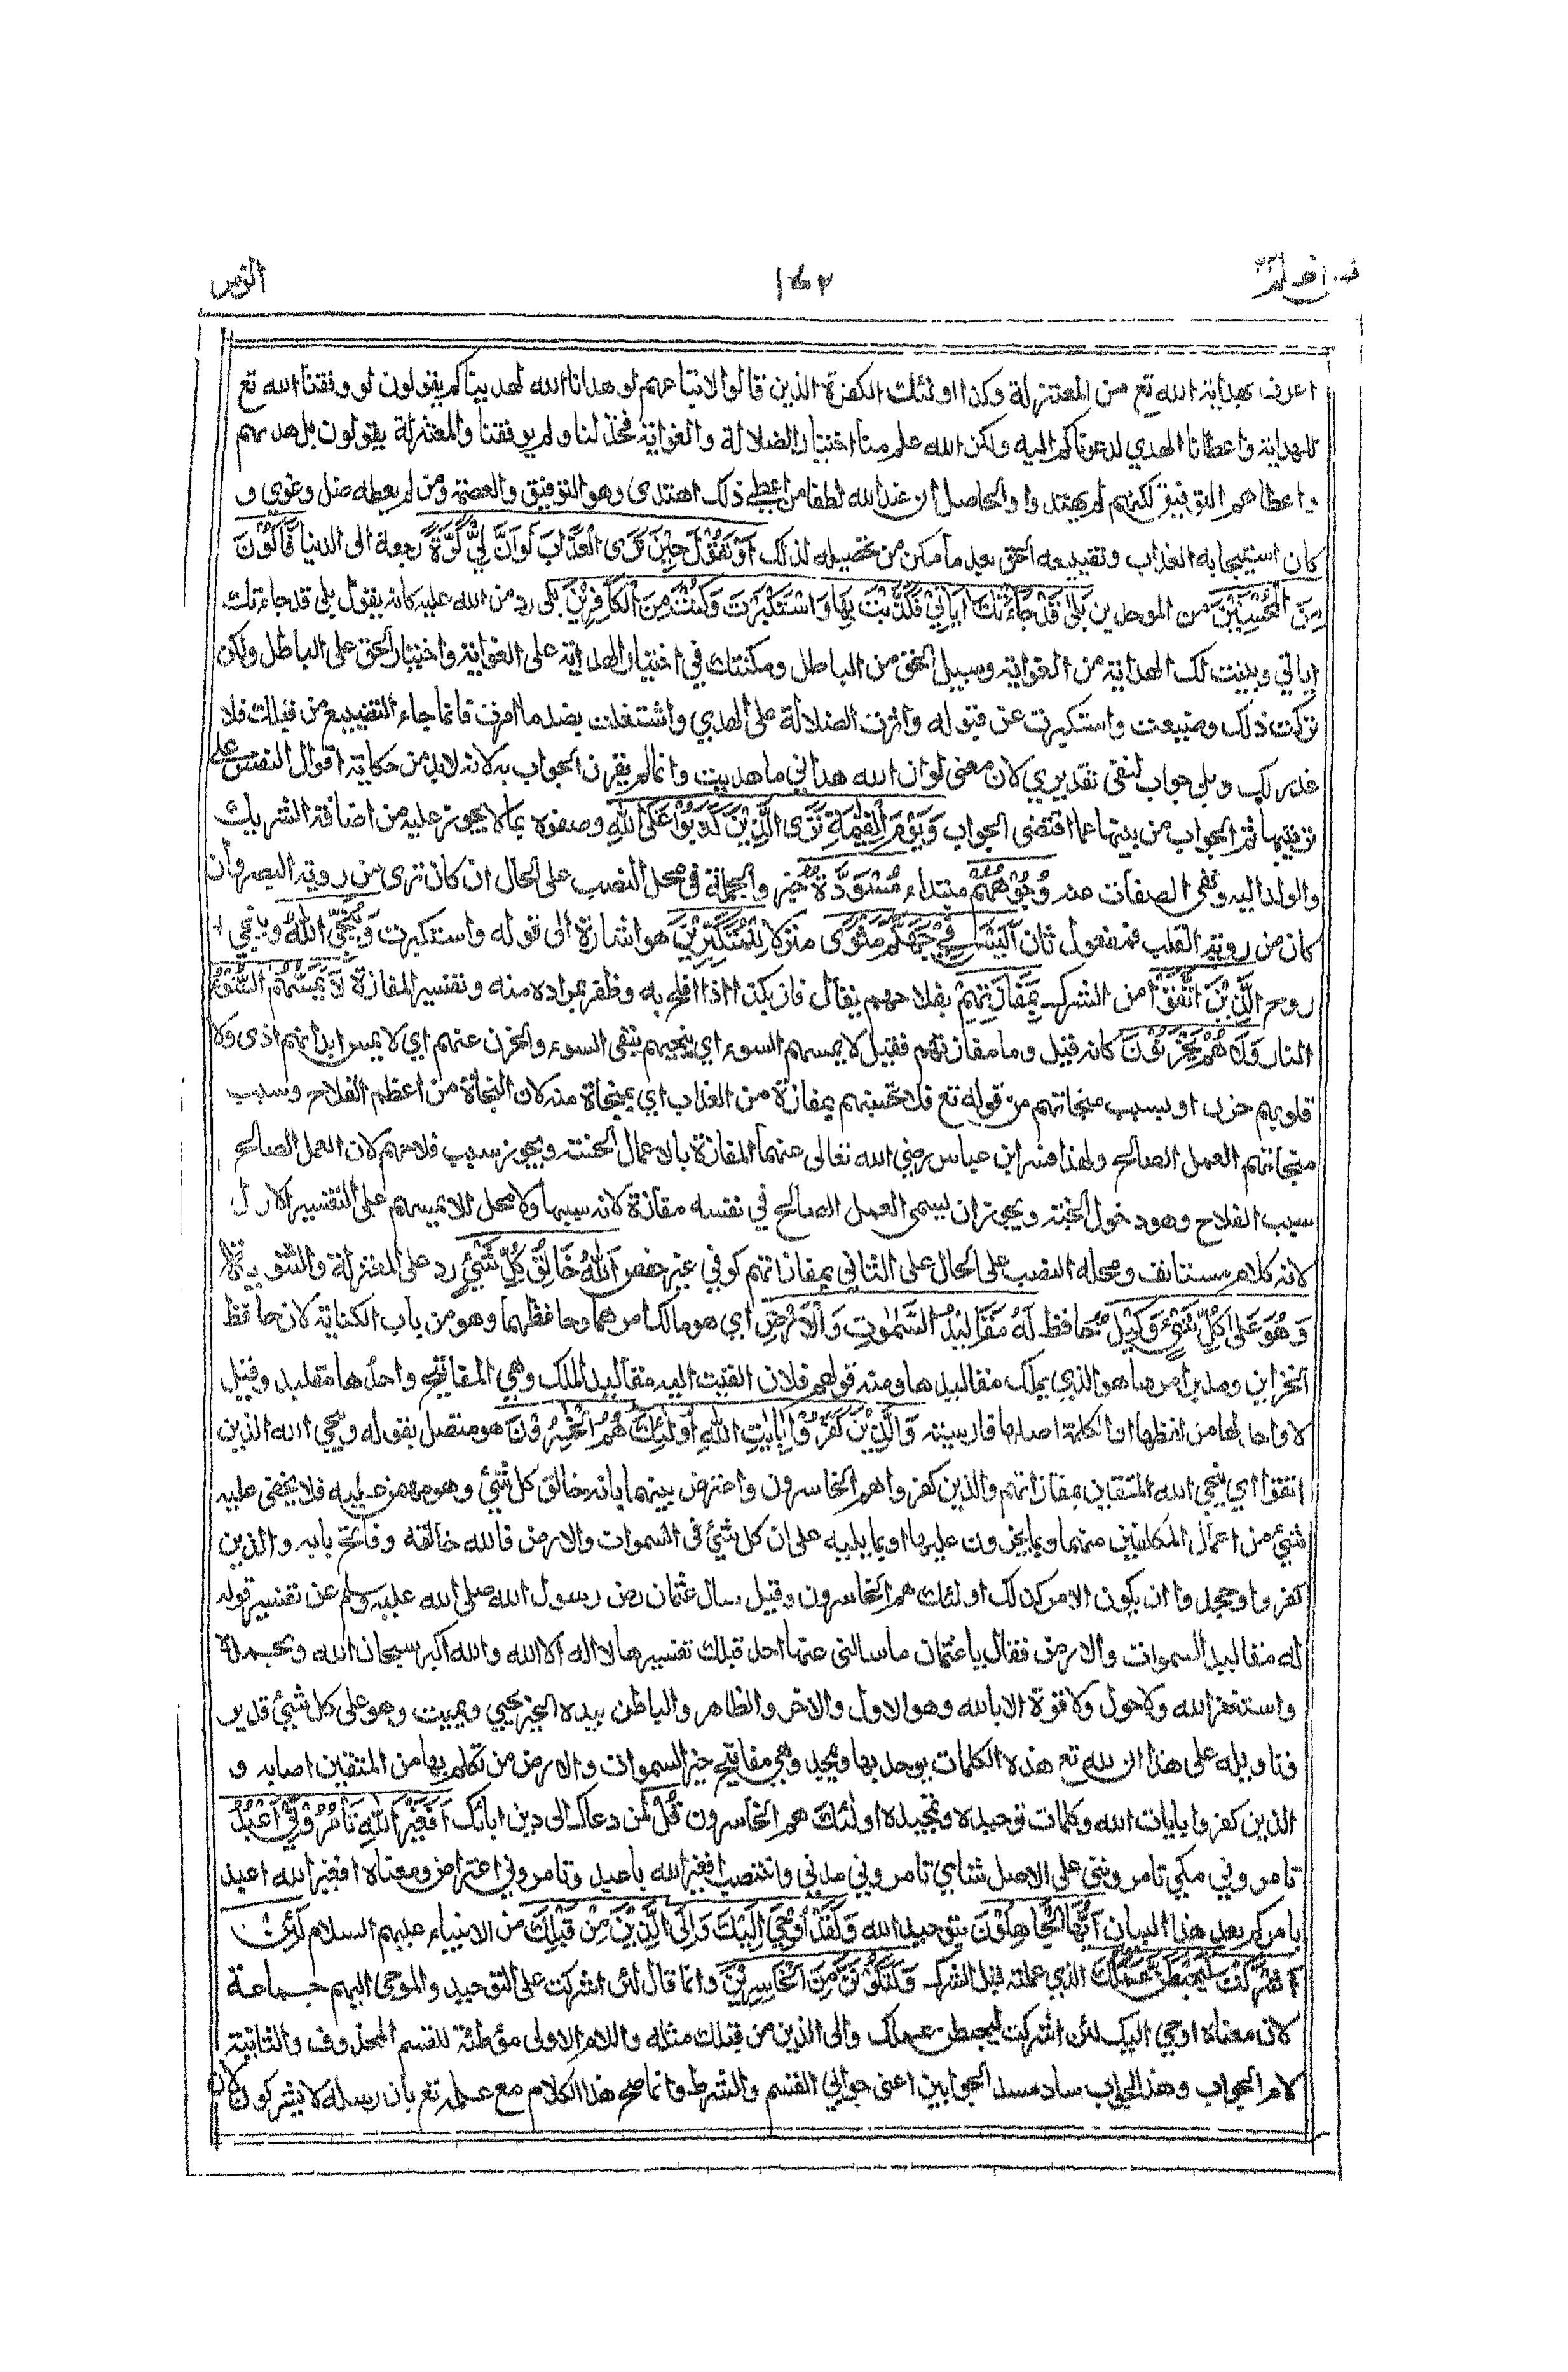 فمن اظلم ١٤٢ الزمر
اعرف بهداية الله تع من المعتزلة وكذا اولئك الكفرة الذين قالوا لاتباعهم لو هدانا الله لهديناكم يقولون لو وفقنا الله تع
للهداية واعطانا الهدي لدعوناكم اليه ولكن الله علم منا اختيار الضلالة والغواية فخذلنا ولم يوفقنا والمعتزلة يقولون بل هديهم
واعطاهم التوفيق لكنهم لم يهتدوا والحاصل ان عند الله لطفا من اعطي ذلك اهتدى وهو التوفيق والعصمة ومن لم يعطه ضل وغوي و
كان استيجابه العذاب وتضييعه الحق بعد ما مكن من تحصيله لذلك اَوْ تَقُوْلَ حِيْنَ تَرَى الْعَذَابَ لَوْ اَنَّ لِيْ كَرَّةً رجعة الى الدنيا فَاَكُوْنَ
مِنَ الْمُحْسِنِيْنَ من الموحدين بَلٰى قَدْ جَاءَتْكَ اٰيَاتِيْ فَكَذَّبْتَ بِهَا وَاسْتَكْبَرْتَ وَكُنْتَ مِنَ الْكَافِرِيْنَ بلى رد من الله عليه كانه يقول بلى قد جاءتك
اياتي وبينت لك الهداية من الغواية وسبيل الحق من الباطل ومكنتك في اختيار الهداية على الغواية واختيار الحق على الباطل ولكن
تركت ذلك وضيعت واستكبرت عن قبوله واثرت الضلالة على الهدي واشتغلت بضد ما امرت فانما جاء التضييع من قبلك فلا
عذر لك وبلى جواب لنفي تقديري لان معنى لو ان الله هداني ما هديت وانما لم يقرن الجواب به لانه لابد من حكاية اقوال النفس على
ترتيبها ثم الجواب من بينها عما اقتضى الجواب وَيَوْمَ الْقِيٰمَةِ تَرَى الَّذِيْنَ كَذَبُوْا عَلَى اللّٰهِ وصفوه بما لا يجوز عليه من اضافة الشريك
والولد اليه ونفى الصفات عنه وُجُوْهُهُمْ مبتداء مُسْوَدَّةٌ خبر والجملة في محل النصب على الحال ان كان ترى من روية البصر وان
كان من روية القلب فمفعول ثان اَلَيْسَ فِيْ جَهَنَّمَ مَثْوًى منزلا لِلْمُتَكَبِّرِيْنَ هو اشارة الى قوله واستكبرت وَيُنَجِّي اللّٰهُ وينجي
روح الَّذِيْنَ اتَّقَوْا من الشرك بِمَفَازَتِهِمْ بفلاحهم يقال فاز بكذا اذا افلح به وظفر بمراده منه وتفسير المفازة لَا يَمَسُّهُمُ السُّوْءُ
النار وَلَا هُمْ يَحْزَنُوْنَ كانه قيل وما مفازتهم فقيل لا يمسهم السوء اي ينجيهم بنفى السوء والحزن عنهم اي لا يمس ابدانهم اذى ولا
قلوبهم حزن او بسبب منجاتهم من قوله تع فلا تحسبنهم بمفازة من العذاب اي بمنجاة منه لان النجاة من اعظم الفلاح وسبب
منجاتهم العمل الصالح ولهذا فسر ابن عباس رضي الله تعالى عنهما المفازة بالاعمال الحسنة ويجوز بسبب فلاحهم لان العمل الصالح
سبب الفلاح وهو دخول الجنة ويجوز ان يسمى العمل الصالح في نفسه مفازة لانه سببها ولا محل للا يمسهم على التفسير الاول
لانه كلام مستانف ومحله النصب على الحال على الثاني بمفازاتهم كوفي غير حفص اَللّٰهُ خَالِقُ كُلِّ شَيْءٍ رد على المعتزلة والثنوية
وَهُوَ عَلٰى كُلِّ شَيْءٍ وَكِيْلٌ حافظ لَهٗ مَقَالِيْدُ السَّمٰوٰتِ وَالْاَرْضِ اي هو مالك امرهما وحافظهما وهو من باب الكناية لان حافظ
الخزاين ومدبر امرها هو الذي يملك مقاليدها ومنه قولهم فلان القيت اليه مقاليد الملك وهي المفاتيح واحدها مقليد وقيل
لا واحد لها من لفظها والكلمة اصلها فارسية وَالَّذِيْنَ كَفَرُوْا بِاٰيٰتِ اللّٰهِ اُولٰئِكَ هُمُ الْخٰسِرُوْنَ هو متصل بقوله وينجي الله الذين
اتقوا اي ينجي الله المتقين بمفازاتهم والذين كفروا هم الخاسرون واعترض بينهما بانه خالق كل شيئ وهو مهيمن عليه فلا يخفى عليه
شيئ من اعمال المكلفين منهما وبما يجزون عليها او بما يليه على ان كل شيئ في السموات والارض فالله خالقه وفاتح بابه والذين
كفروا وجحدوا ان يكون الامر كذلك اولئك هم الخاسرون وقيل سال عثمان رض رسول الله صلى الله عليه وسلم عن تفسير قوله
له مقاليد السموات والارض فقال يا عثمان ما سالني عنها احد قبلك تفسيرها لا اله الا الله والله اكبر سبحان الله وبحمده
واستغفر الله ولا حول ولا قوة الا بالله وهو الاول والاخر والظاهر والباطن بيده الخير يحيي ويميت وهو على كل شيئ قدير
فتاويله على هذا ان لله تع هذه الكلمات يوحد بها ويمجد وهي مفاتيح خير السموات والارض من تكلم بها من المتقين اصابه و
الذين كفروا بايات الله وكلمات توحيده وتمجيده اولئك هم الخاسرون قُلْ لمن دعاك الى دين ابائك اَفَغَيْرَ اللّٰهِ تَاْمُرُوْنِّيْ اَعْبُدُ
تامروني مكي تامرونني على الاصل شامي تامروني مدني وانتصب افغير الله باعبد وتامروني اعتراض ومعناه افغير الله اعبد
بامركم بعد هذا البيان اَيُّهَا الْجَاهِلُوْنَ بتوحيد الله وَلَقَدْ اُوْحِيَ اِلَيْكَ وَاِلَى الَّذِيْنَ مِنْ قَبْلِكَ من الانبياء عليهم السلام لَئِنْ
اَشْرَكْتَ لَيَحْبَطَنَّ عَمَلُكَ الذي عملته قبل الشرك وَلَتَكُوْنَنَّ مِنَ الْخَاسِرِيْنَ وانما قال لئن اشركت على التوحيد والموحى اليهم جماعة
لان معناه اوحي اليك لئن اشركت ليحبطن عملك والى الذين من قبلك مثله واللام الاولى مؤطئة للقسم المحذوف والثانية
لام الجواب وهذا الجواب ساد مسد الجوابين اعنى جوابي القسم والشرط وانما صح هذا الكلام مع علمه تع بان رسله لا يشركون لان